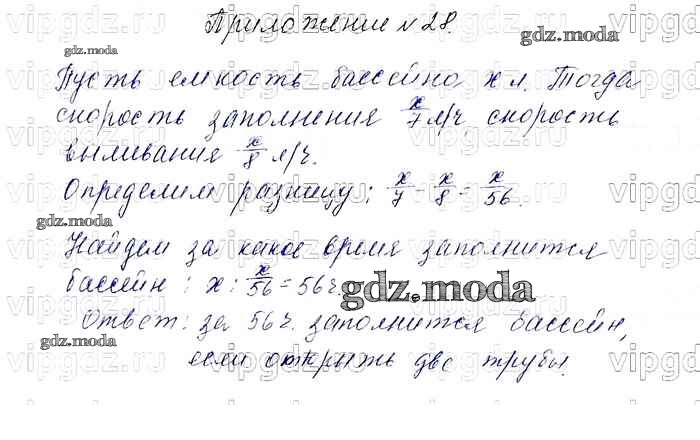 Приложение №28.
Пусть емкость бассейна x л. Тогда
скорость заполнения x/7 л/ч, скорость
выливания x/8 л/ч.
Определим разницу: x/7 - x/8 = x/56.
Найдем за какое время заполнится
бассейн : x : x/56 = 56 ч.
Ответ: за 56 ч. заполнится бассейн,
если открыть две трубы.
gdz.moda
gdz.moda
gdz.moda
gdz.moda
gdz.moda